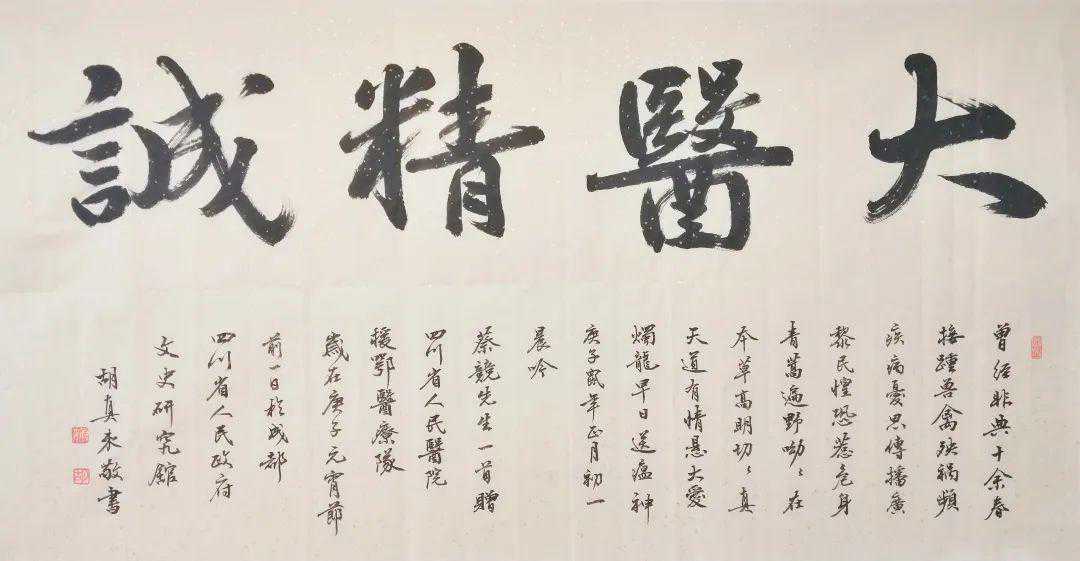 大醫精誠
曾经非典十余春
接踵兽禽殃祸频
疾病憂思傳播廣
黎民惶恐惹危身
青蒿遍野呦〻在
本草高明切〻真
天道有情悬大爱
烛龍早日送瘟神
庚子鼠年正月初一
晨吟
蔡競先生一首贈
四川省人民醫院
援鄂醫療隊
歲在庚子元宵節
前一日於成都
四川省人民政府
文史研究館
胡真来敬書